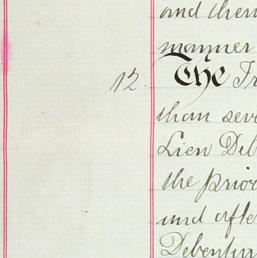 and then
manner
12. The Tr
than seve
Lien Deb
the prior
and afte
Debentur